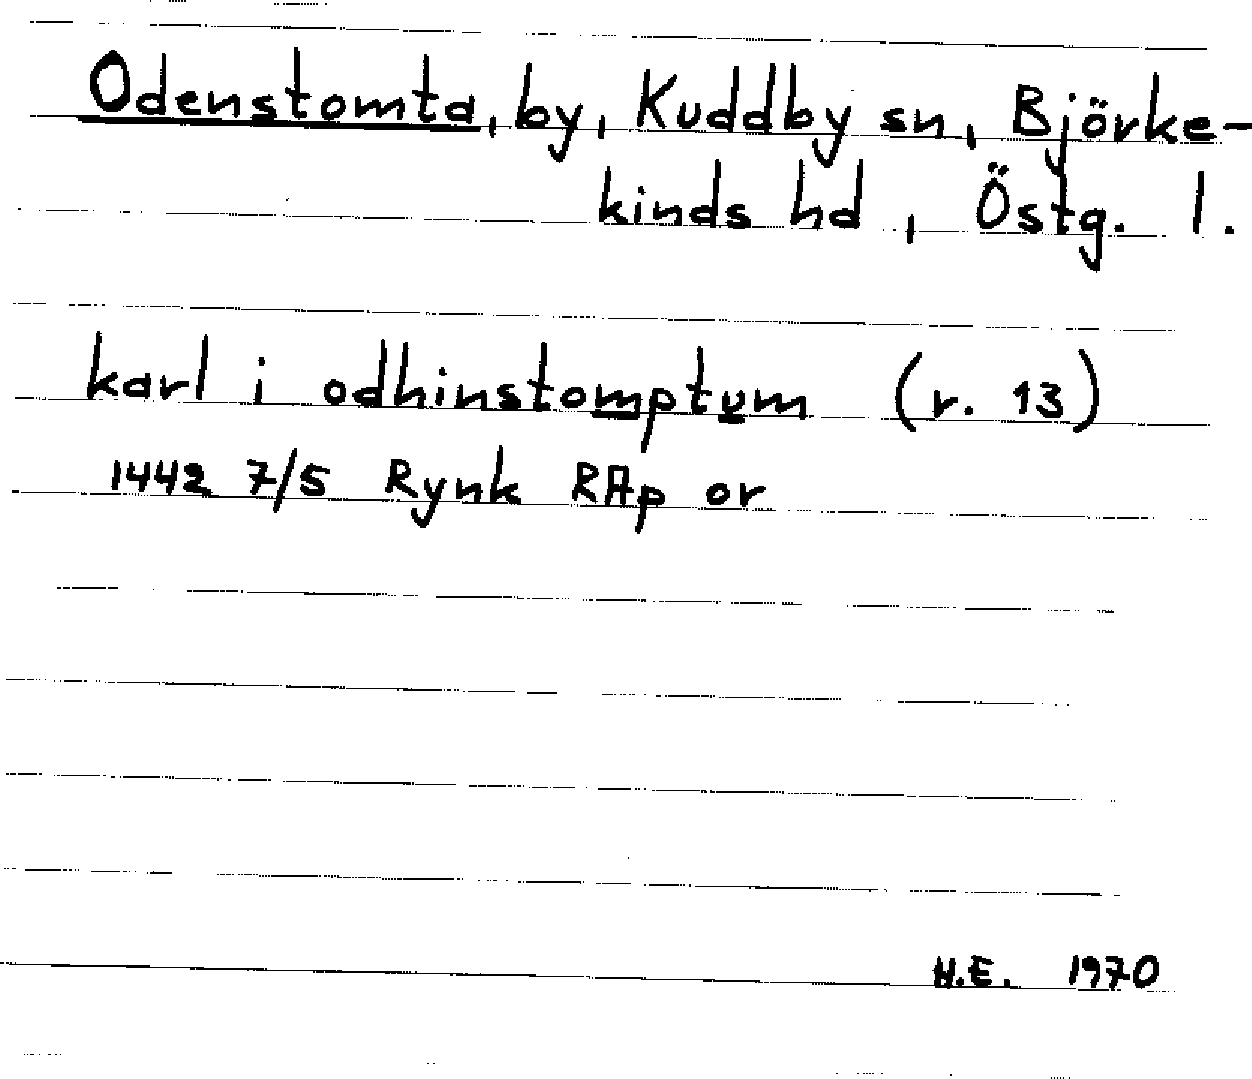 Odenstomta, by, Kuddby sn, Björke-
kinds hd, Östg. l.
karl i odhinstomptum (r. 13)
1442 7/5 Rynk RAp or
H.E. 1970